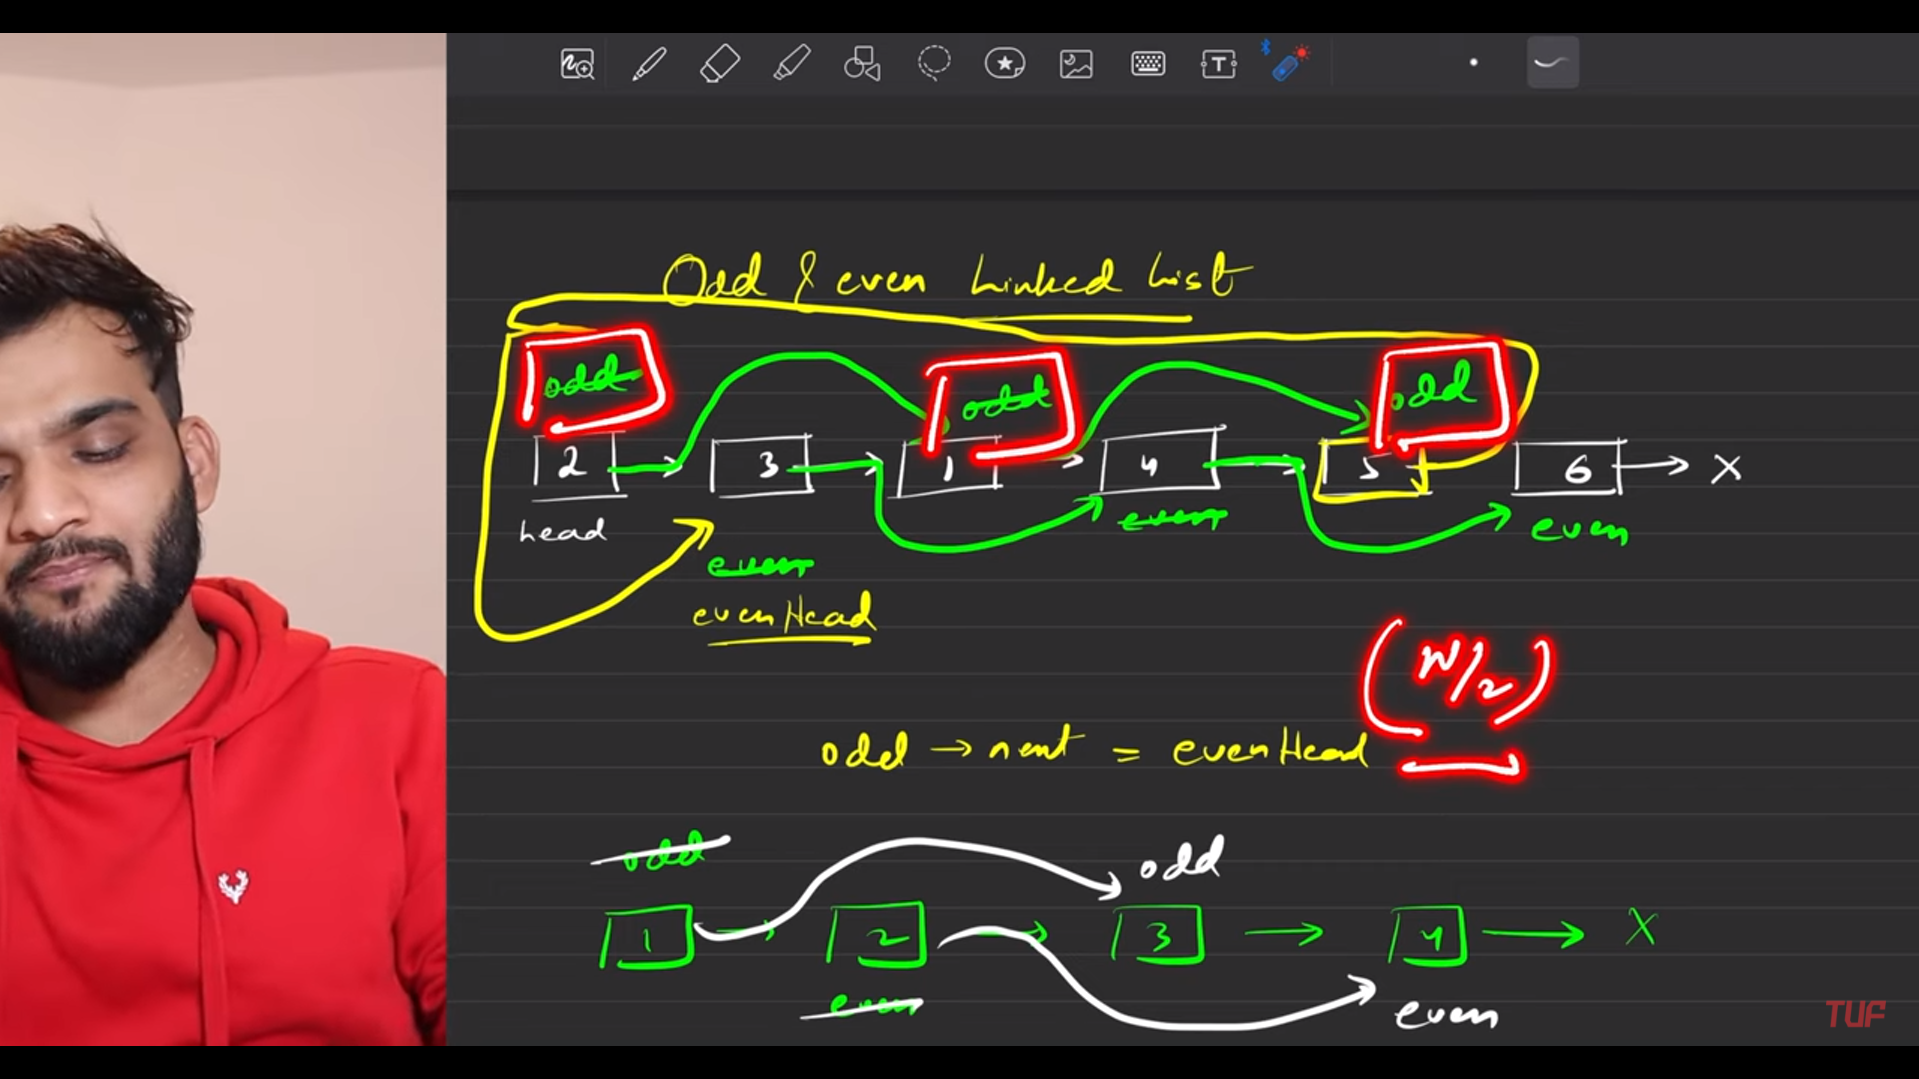 T
Odd & even Linked List
odd odd odd
2 3 1 4 5 6 X
head even even
even
evenHead
(N/2)
odd → next = evenHead
odd odd
1 2 3 4 X
even even
TUF